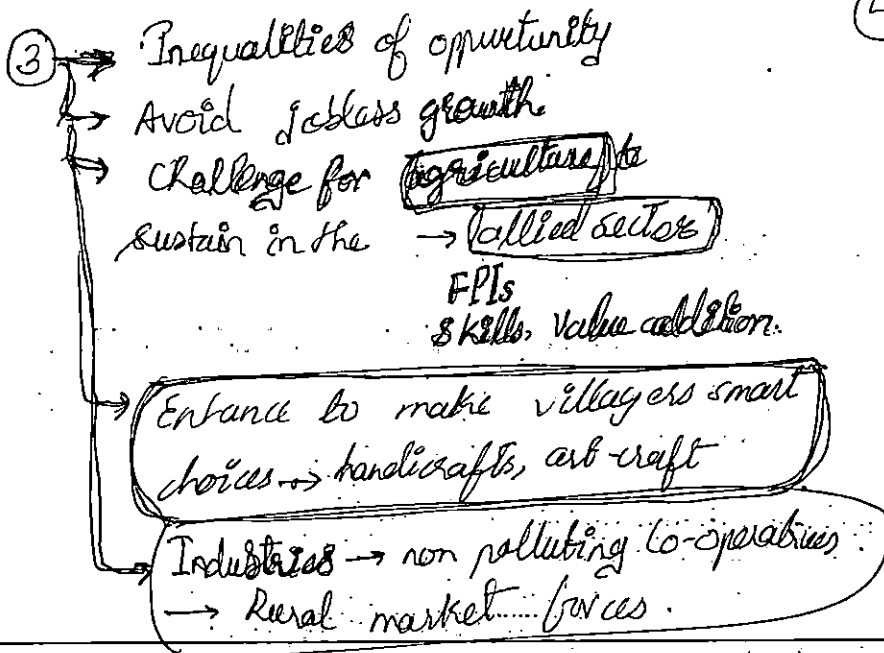 ③ → Inequalities of oppurtunity
→ Avoid jobless growth
→ Challenge for agriculture to
sustain in the → allied sector
FPIs
Skills, Value addition.
→ Entance to make villagers smart
choices → handicrafts, art-craft
→ Industries → non polluting Co-operatives
→ Rural market forces.